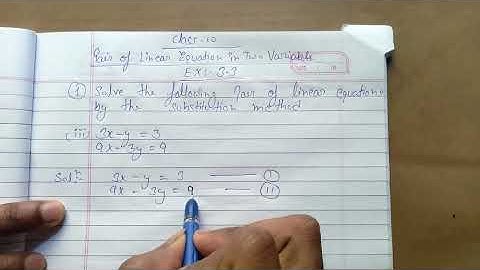 Class-10
Pair of Linear Equation in two Variable
EX:- 3.3
① Solve the following Pair of linear equations
by the substitution method
(iii) 3x-y = 3
9x - 3y = 9
Solⁿ:- 3x - y = 3 ——— ①
9x - 3y = 9 —— ⑪